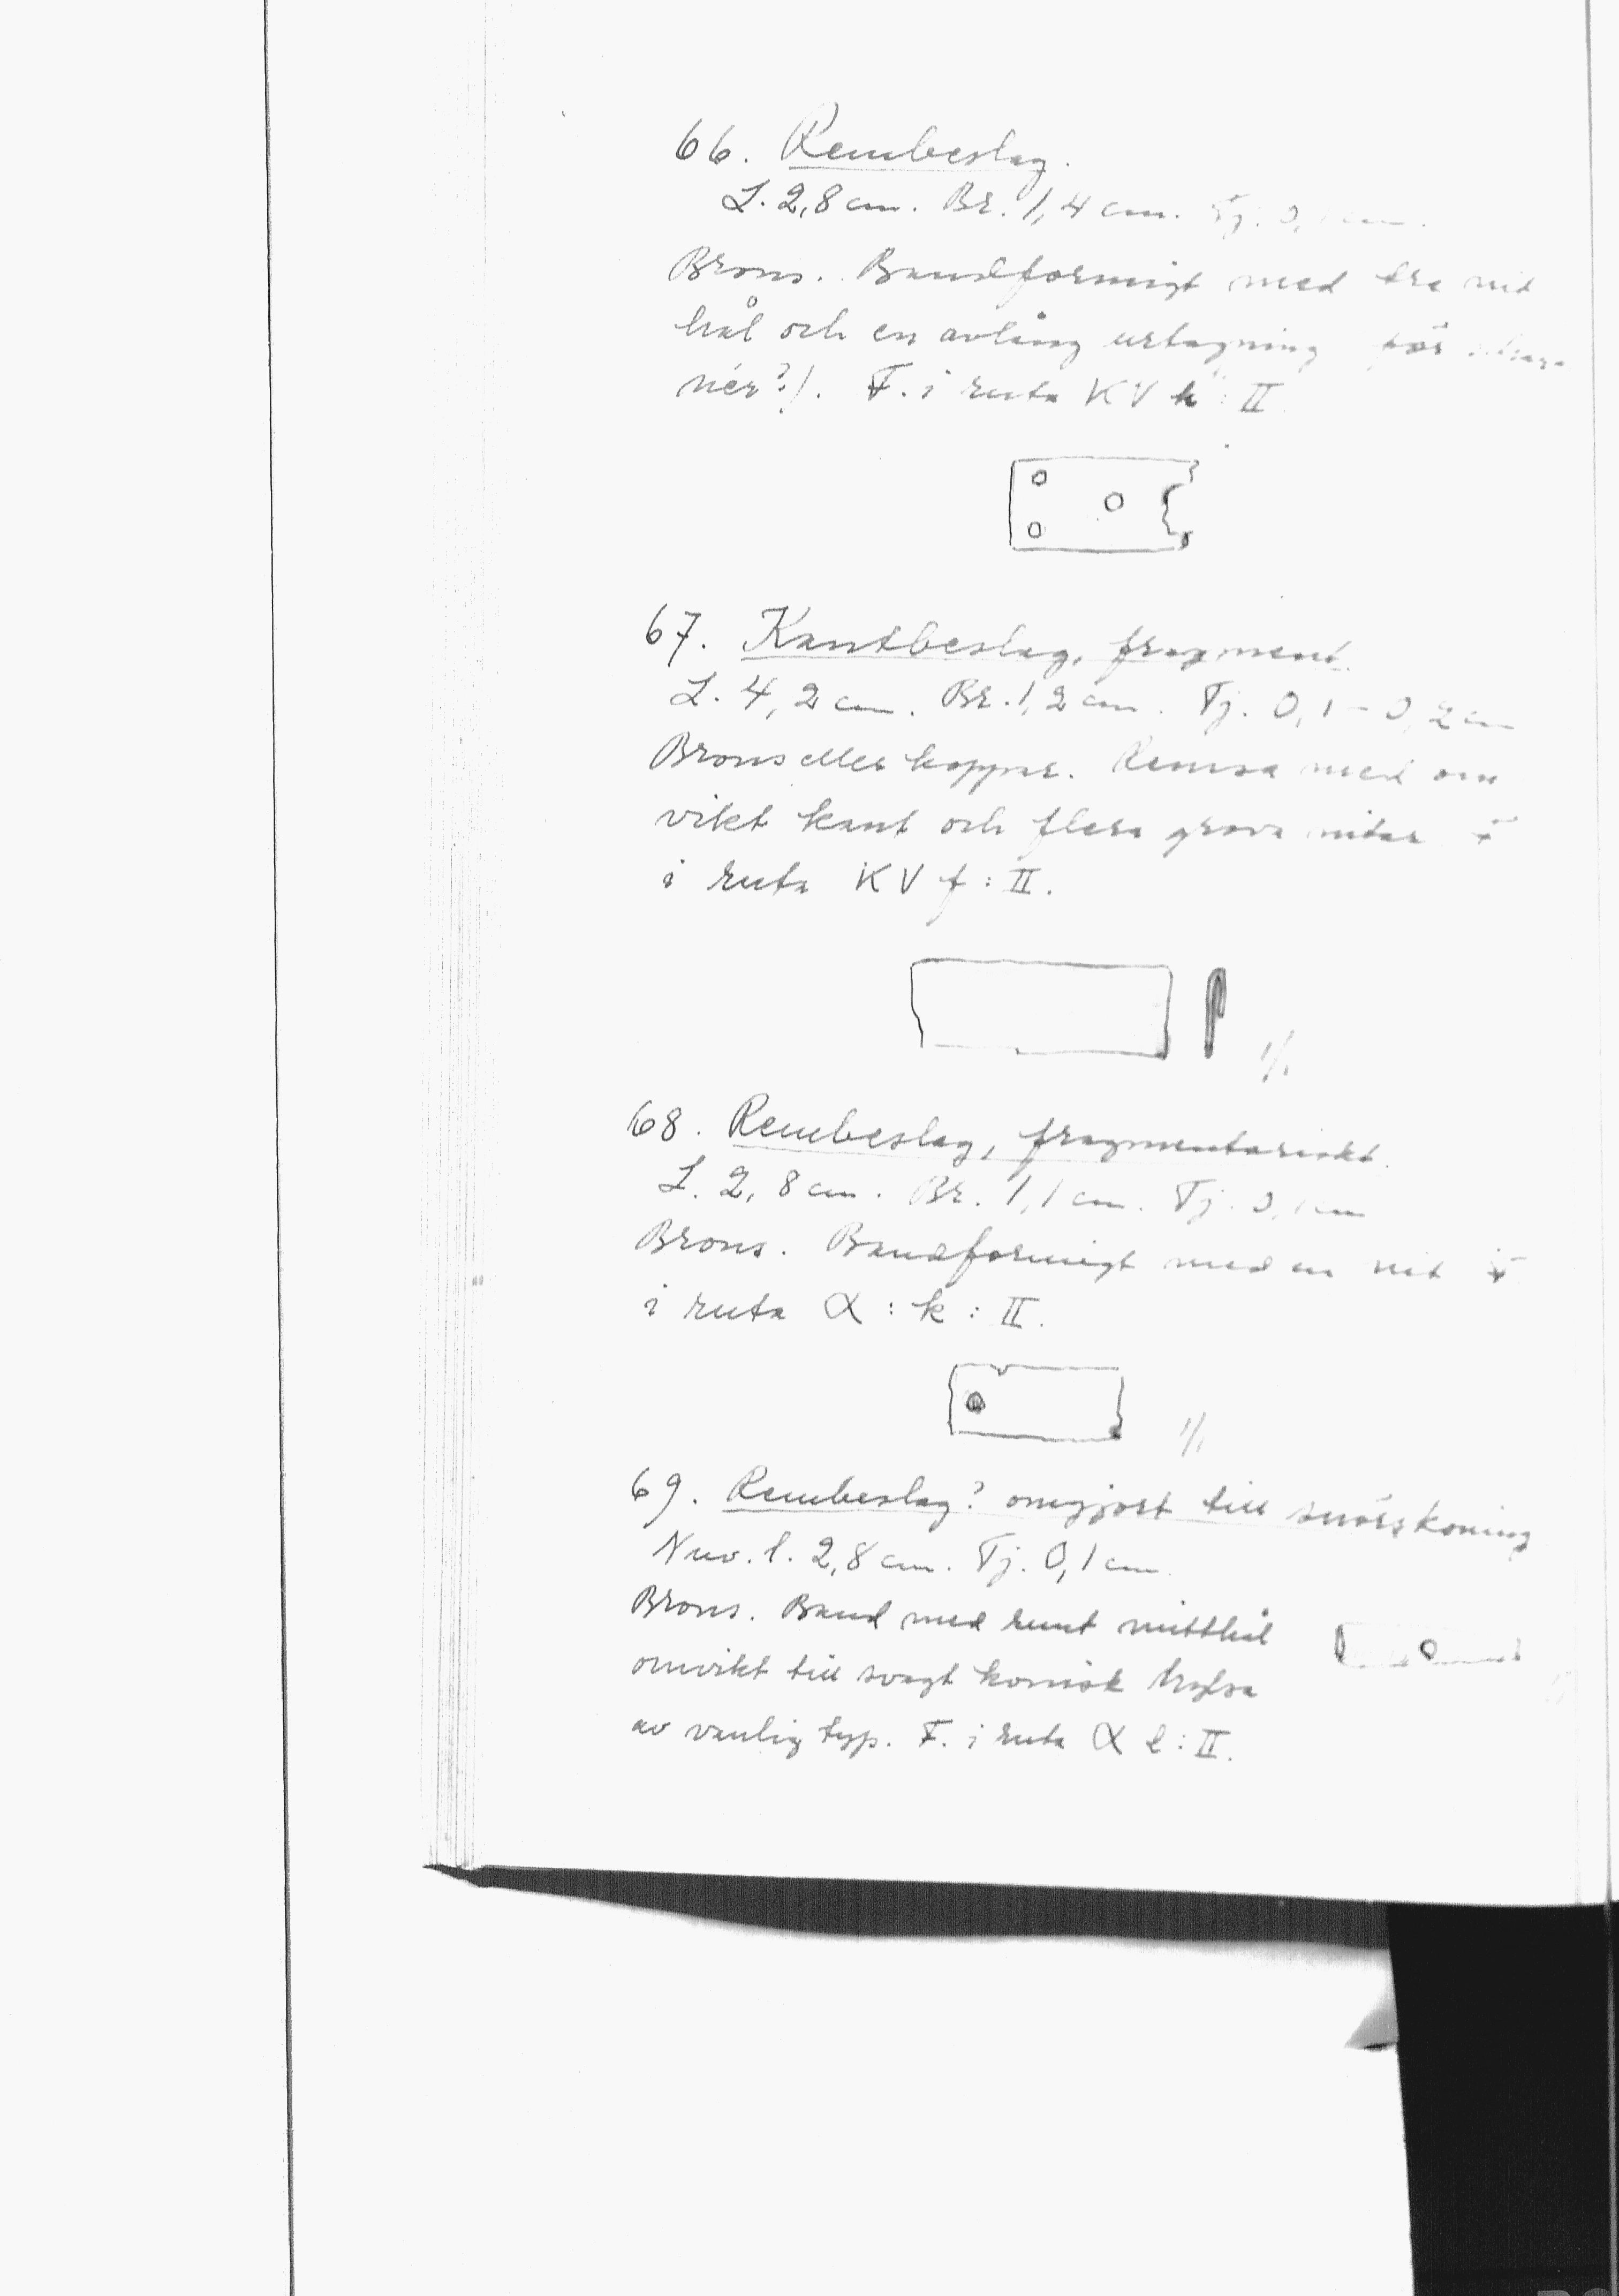 66. Rembeslag.
L. 2,8 cm. Br. 1,4 cm. Tj. 0, cm.
Brons. Bandformigt med tre nit
hål och en avlång urtagning för
nér?). F. i ruta KV k : II
67. Kantbeslag, fragment.
L. 4,2 cm. Br. 1,2 cm. Tj. 0,1 – 0,2 cm
Brons eller koppar. Remsa med om
vikt kant och flera grova nitar F
i ruta KV f : II.
1/1
68. Rembeslag, fragmentariskt.
L. 2,8 cm. Br. 1,1 cm. Tj. 0,1 cm
Brons. Bandformigt med en nit F
i ruta α : k : II.
1/1
69. Rembeslag? omgjort till snörskoning
Nuv. l. 2,8 cm. Tj. 0,1 cm.
Brons. Band med runt mitthål
omvikt till svagt konisk hylsa
av vanlig typ. F. i ruta α l : II.